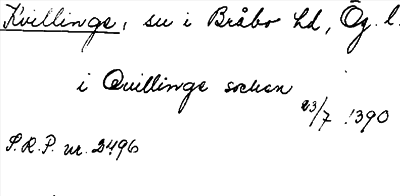 Kvillinge, sn i Bråbo hd, Ög. l.
i Quillinge socken
23/7 1390
S.R.P. nr. 2496